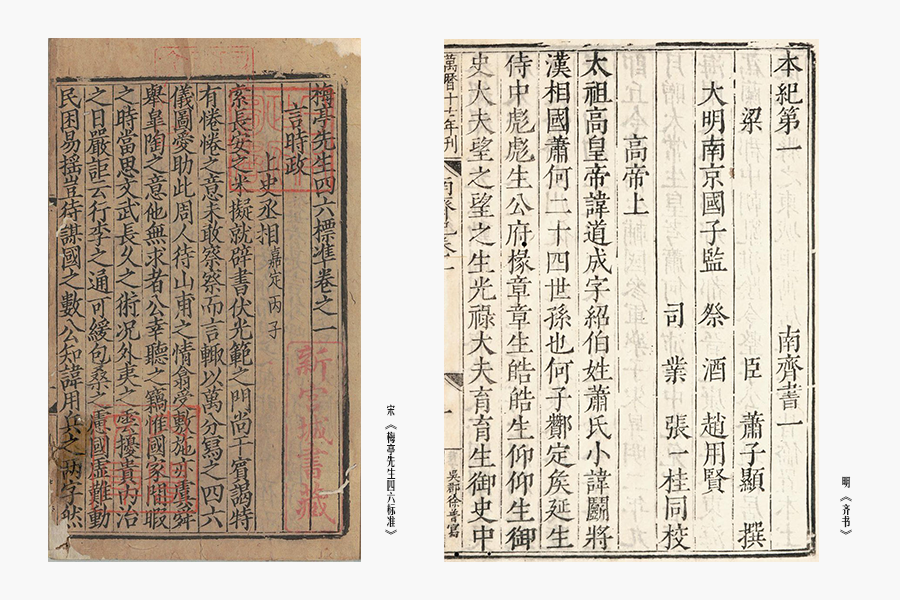 梅亭先生四六標準卷之一
言時政
上史丞相 嘉定丙子
索長安之米擬就辟書伏光範之門尚干賓謁特
有惓惓之意未敢察察而言輒以萬分寫之四六
儀圖愛助此周人待山甫之情翕受敷施亦虞舜
舉皐陶之意他無求者公幸聽之竊惟國家閒暇
之時當思文武長久之術况外夷之雲擾責内治
之日嚴詎云行李之通可緩包桑之慮國虛難動
民困易搖豈待謀國之數公知諱用兵之兩字然
新宮城書藏
宋《梅亭先生四六标准》
本紀第一 南齊書一
梁 臣 蕭子顯 撰
大明南京國子監 祭 酒 趙用賢
司 業 張一桂同校
高帝上
太祖高皇帝諱道成字紹伯姓蕭氏小諱鬭將
漢相國蕭何二十四世孫也何子酇定矦延生
侍中彪彪生公府掾章章生皓皓生仰仰生御
史大夫望之望之生光祿大夫育育生御史中
萬曆十年刊
吳郡徐普寫
明《齐书》